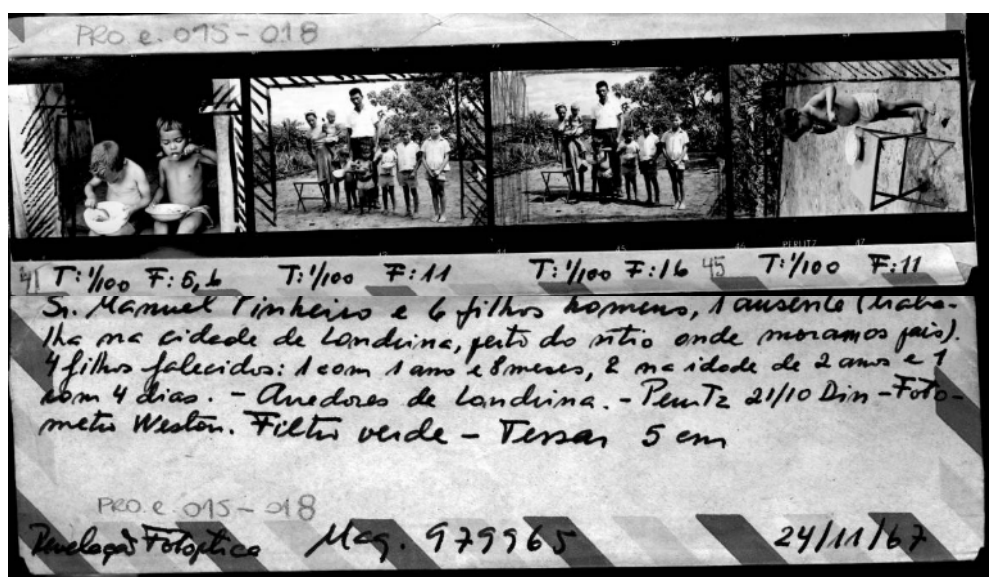 PRO.e.015-018
PERUTZ
41 T: 1/100 F: 5,6 T: 1/100 F: 11 T: 1/100 F: 16 45 T: 1/100 F: 11
Sr. Manuel Pinheiro e 6 filhos homens, 1 ausente (traba-
lha na cidade de Londrina, perto do sítio onde moram os pais).
4 filhos falecidos: 1 com 1 ano e 8 meses, 2 na idade de 2 anos e 1
com 4 dias. - Arredores de Londrina. - Perutz 21/10 Din - Foto-
metro Weston. Filtro verde - Tessar 5 cm
PRO.e.015-018
Revelação Fotoptica Mag. 979965 24/11/67